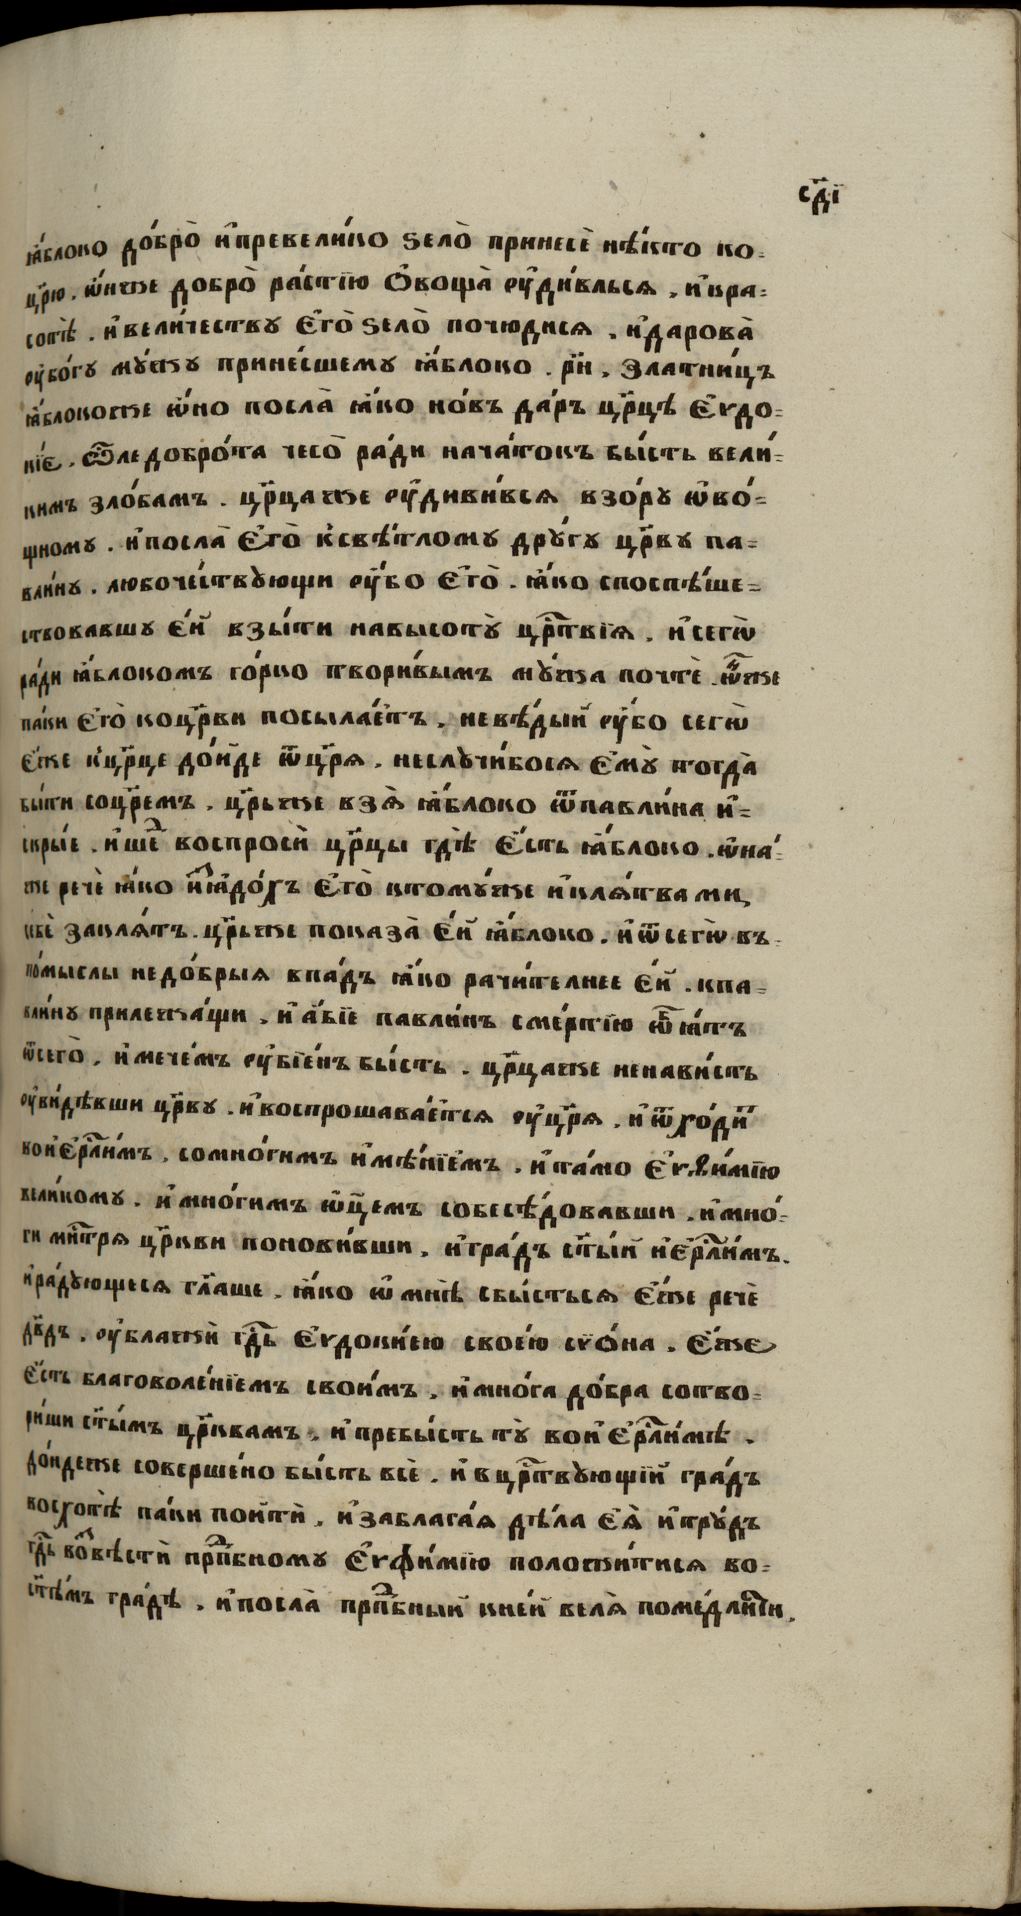 сд҃і
ꙗ҆́блоко до́бро̀ и҆превели́ко ѕело̀ принесѐ нѣ́кто ко=
цр҃ю . ѡ҆́нъже добро̀ ра́стїю ѻ҆воща̀ ѹ҆ди́вльсѧ , и҆кра=
сотѣ̀ . и҆вели́чествꙋ є҆гѡ̀ ѕело̀ почюдисѧ , и҆дарова̀
ѹ҆бо́гꙋ мꙋ́жꙋ прине́сшемꙋ ꙗ҆́блоко . рн҃ , златни́цъ
ꙗ҆́блокоже ѡ҆́но посла̀ ꙗ҆́ко но́въ да́ръ цр҃цѣ є҆ѵдо=
кі́е . ѽле добро́та чесо̀ ра́ди нача́токъ бы́сть вели́=
кимъ зло́бамъ . цр҃цаже ѹ҆диви́всѧ взо́рꙋ ѡ҆во́=
щномꙋ . и҆посла̀ є҆го̀ ксвѣ́тломꙋ дрꙋ́гꙋ цр҃вꙋ па=
вли́нꙋ . любоче́ствꙋющи ѹ҆́бо є҆го̀ . ꙗ҆́ко споспѣ́ше=
ствовавшꙋ є҆́й взы́ти навысотꙋ̀ црⷭ҇твїѧ . и҆сегѡ̀
ра́ди ꙗ҆́блокомъ го́рко твори́вымъ мꙋ́жа почтѐ . ѻ҆́нже
па́ки є҆го̀ коцр҃ви посыла́етъ . невѣ́дый ѹ҆́бо сегѡ̀
є҆́же кцр҃це до́иде ѿцр҃ѧ . неслꙋчи́босѧ є҆мꙋ̀ тогда̀
бы́ти соцр҃емъ . цр҃ьже взѧ̀ ꙗ҆́блоко ѿпавли́на и҆=
скры́е . и҆шеⷣ воспроси̏ цр҃цы гдѣ̀ є҆́сть ꙗ҆́блоко . ѡ҆на́=
же речѐ ꙗ҆́ко и҆ꙗ҆до́хъ є҆го̀ ктомꙋ́же и҆клѧ́твами
себѐ заклѧ́тъ . цр҃ьже показа̀ є҆́й ꙗ҆́блоко . и҆ѿсегѡ̀ въ=
по́мыслы недо́брыѧ впа́дъ ꙗ҆́ко рачи́телнее є҆́й . кпа=
вли́нꙋ прилежа́щи . и҆а҆́бїе павли́нъ сме́ртїю ѿꙗ҆́тъ
ѿсего̀ , и҆мече́мъ ѹ҆бїе́нъ бы́сть . цр҃цаже нена́висть
ѹ҆ви́дѣвши цр҃вꙋ . и҆воспрошава́етсѧ ѹ҆цр҃ѧ . и҆ѿхо́диⷮ
воі҆єрⷭ҇ли́мъ . сомно́гимъ и҆мѣ́нїемъ . и҆та́мо є҆ѵѳи́мїю
вели́комꙋ . и҆мно́гимъ ѻ҆ц҃емъ собесѣ́довавши . и҆мно́=
ги мнⷭ҇трѧ цр҃кви понови́вши . и҆гра́дъ ст҃ы́й и҆єрⷭ҇ли́мъ .
и҆ра́дꙋющесѧ гл҃аше . ꙗ҆́ко ѡ҆ мнѣ̀ сбы́стьсѧ є҆́же речѐ
дв҃дъ . ѹ҆блажѝ гдⷭ҇ь є҆ѵдоки́ею свое́ю сїѻ́на . є҆́же
є҆́сть благоволе́нїемъ свои́мъ . и҆мно́га до́бра сотво=
ри́ши ст҃ы́мъ цр҃квамъ . и҆пребы́сть тꙋ̀ воі҆єрⷭ҇ли́мѣ .
до́ндеже соверше́но бы́сть всѐ . и҆вцрⷭ҇твꙋющїй гра́дъ
восхотѣ̀ па́ки пои҆тѝ . и҆заблага́ѧ дѣ́ла є҆ѧ̀ и҆трꙋ́дъ
гдⷭ҇ь возвѣстѝ прⷣпбномꙋ є҆ѵѳи́мїю положи́тисѧ во=
ст҃ѣ́мъ гра́дѣ . и҆посла̀ прⷣпбный кне́й велѧ̀ поме́длити .